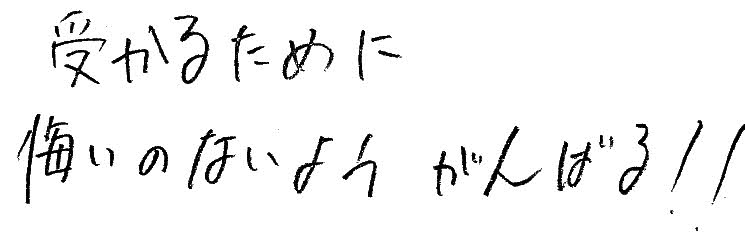 受かるために
悔いのないよう がんばる!!